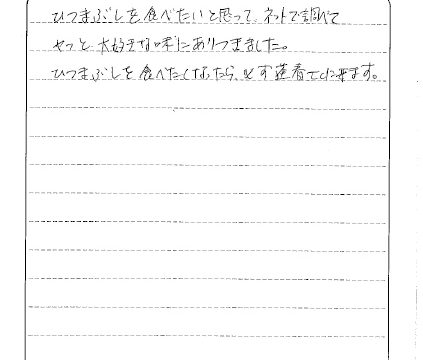 ひつまぶしを食べたいと思って、ネットで調べて
やっと大好きな味にありつきました。
ひつまぶしを食べたくなったら、必ず蓮香てに来ます。